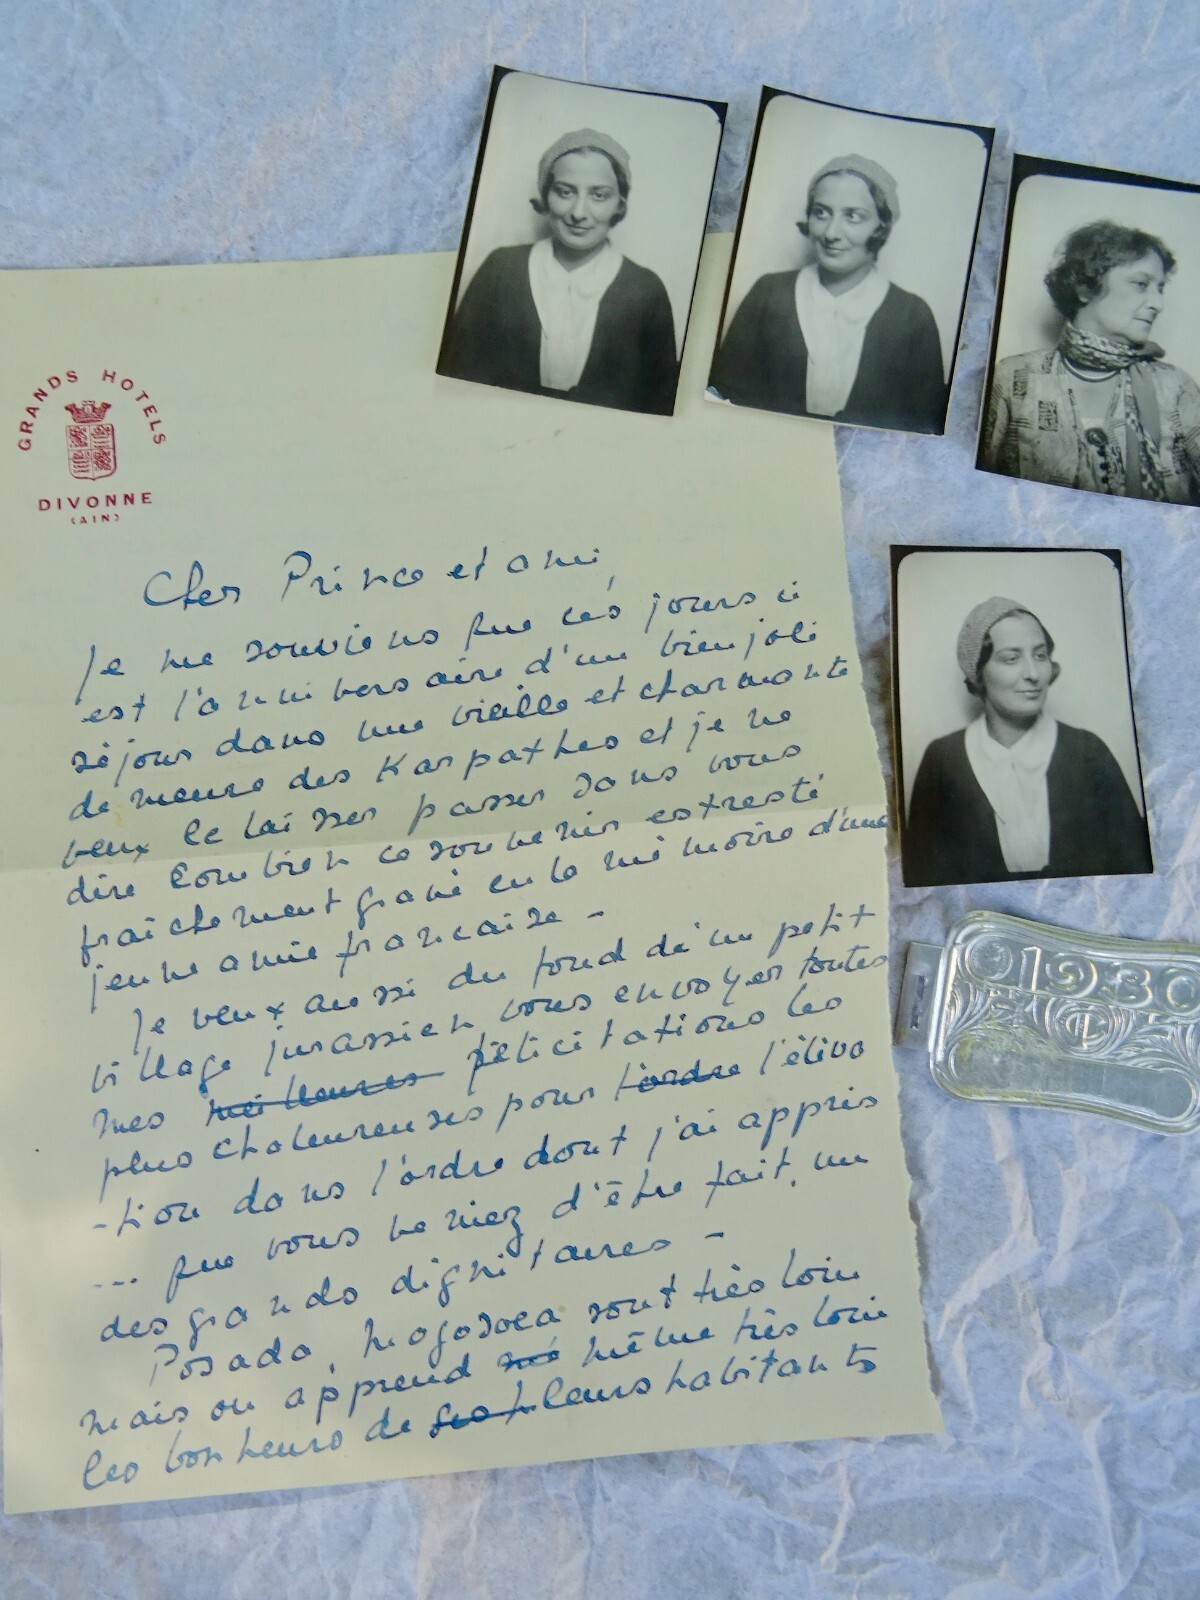 GRANDS HOTELS
DIVONNE
(AIN)
Cher Prince et ami,
Je me souviens que ces jours ci
est l'anniversaire d'un bien joli
séjour dans une vieille et charmante
demeure des Karpathes et je ne
veux le laisser passer sans vous
dire combien ce souvenir est resté
fraichement gravé en la mémoire d'une
jeune amie francaise -
Je veux aussi du fond d'un petit
village jurassien vous envoyer toutes
mes meilleures félicitations les
plus chaleureuses pour l'ordre l'éléva
-tion dans l'ordre dont j'ai appris
--- que vous veniez d'être fait, un
des grands dignitaires -
Posada, Mogosoea sont très loin
mais on apprend même très loin
les bonheurs de leurs habitants
1930